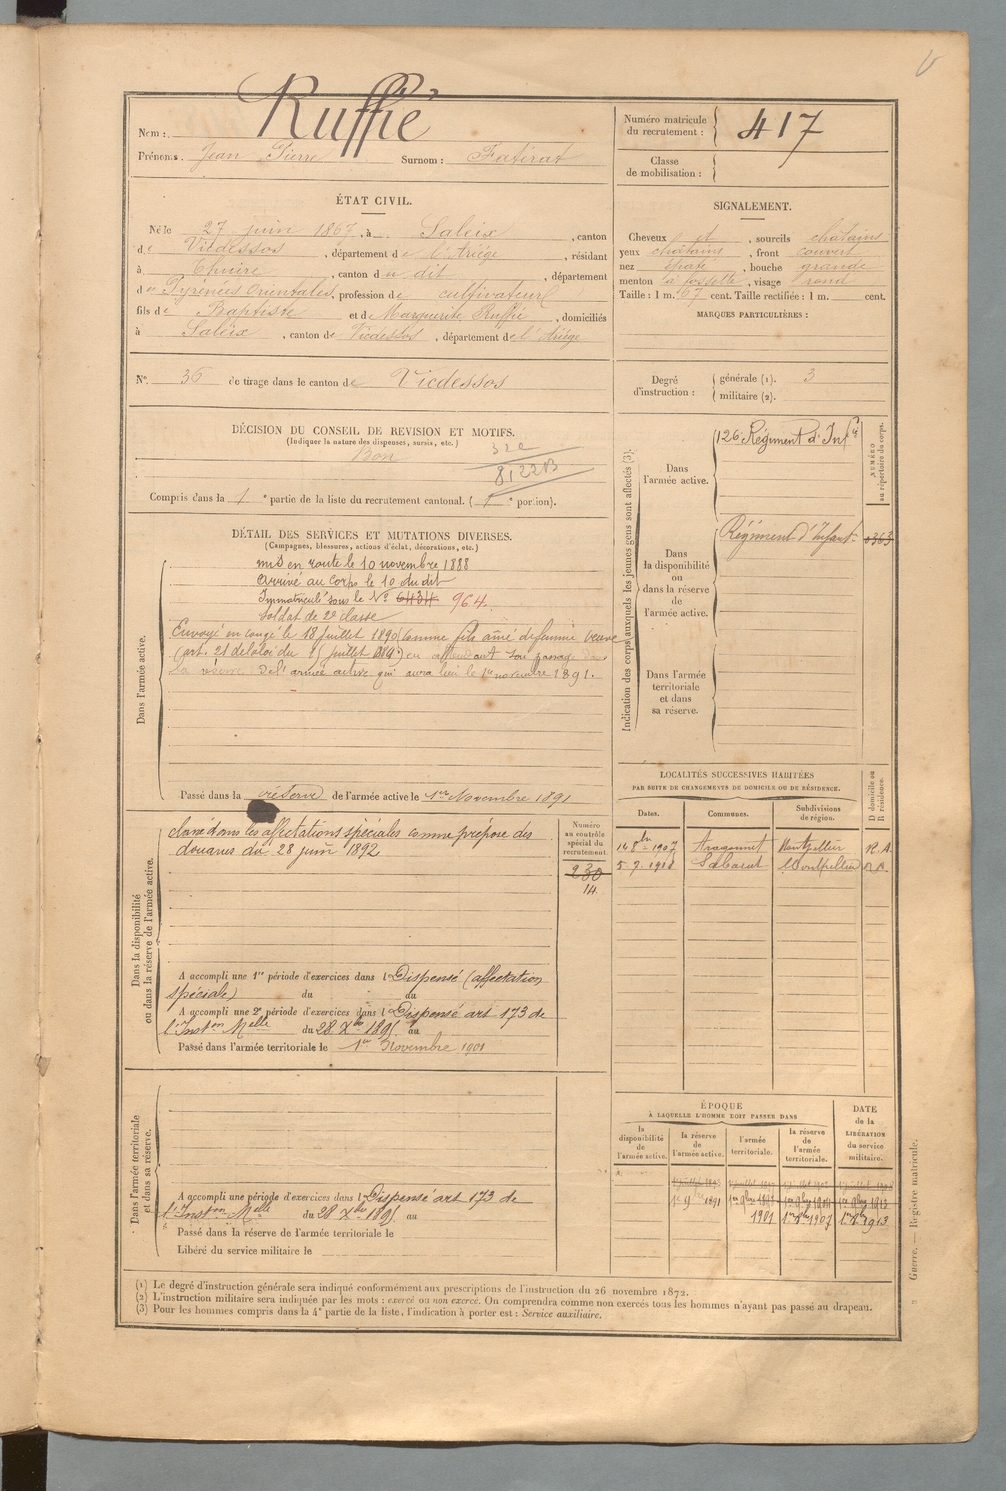 Nom : Ruffié
Prénoms. Jean Pierre Surnom : Fatirat
Numéro matricule du recrutement : 417
Classe de mobilisation :
ÉTAT CIVIL.
Né le 27 juin 1867, à Saleix, canton
de Vicdessos, département de l'Ariége, résidant
à Thuire, canton du dit, département
des Pyrénées Orientales, profession de cultivateur
fils de Baptiste et de Marguerite Ruffié, domiciliés
à Saleix, canton de Vicdessos, département de l'Ariége
N° 36 de tirage dans le canton de Vicdessos
SIGNALEMENT.
Cheveux et, sourcils châtains
yeux châtains, front couvert
nez épaté, bouche grande
menton à fossette, visage rond
Taille : 1 m. 67 cent. Taille rectifiée : 1 m. cent.
MARQUES PARTICULIÈRES :
Degré d'instruction : générale (1). 3
militaire (2).
DÉCISION DU CONSEIL DE REVISION ET MOTIFS.
(Indiquer la nature des dispenses, sursis, etc.)
Bon
Compris dans la 1e partie de la liste du recrutement cantonal. (1e portion).
DÉTAIL DES SERVICES ET MUTATIONS DIVERSES.
(Campagnes, blessures, actions d'éclat, décorations, etc.)
Dans l'armée active.
mis en route le 10 novembre 1888
Arrivé au Corps le 10 du dit
Immatriculé sous le N° 6434 964.
Soldat de 2e classe
Envoyé en congé le 18 juillet 1890 (comme fils aîné de femme veuve
(art. 21 de la loi du juillet 1889) en attendant son passage dans
la réserve de l'armée active qui aura lieu le 1er novembre 1891.
Passé dans la réserve de l'armée active le 1er Novembre 1891
Indication des corps auxquels les jeunes gens sont affectés (3).
Dans l'armée active.
126 Régiment d'Infie
NUMÉRO au répertoire du corps.
Dans la disponibilité ou dans la réserve de l'armée active.
Régiment d'Infant.
Dans l'armée territoriale et dans sa réserve.
Dans la disponibilité ou dans la réserve de l'armée active.
classé dans les affectations spéciales comme préposé des
douanes du 28 juin 1892
Numéro au contrôle spécial du recrutement.
230
14
A accompli une 1re période d'exercices dans l Dispensé (affectation
spéciale) du au
A accompli une 2e période d'exercices dans l Dispensé art 173 de
l'Inston Melle du 28 Xbre 1895 au
Passé dans l'armée territoriale le 1er Novembre 1901
LOCALITÉS SUCCESSIVES HABITÉES
PAR SUITE DE CHANGEMENTS DE DOMICILE OU DE RÉSIDENCE.
Dates. Communes. Subdivisions de région. D domicile ou R résidence.
1907 Aragonnet Montpellier R.A.
Montpellier
Dans l'armée territoriale et dans sa réserve.
A accompli une période d'exercices dans l Dispensé art 173 de
l'Inston Melle du 28 Xbre 1895 au
Passé dans la réserve de l'armée territoriale le
Libéré du service militaire le
ÉPOQUE
À LAQUELLE L'HOMME DOIT PASSER DANS
la disponibilité de l'armée active.
la réserve de l'armée active.
l'armée territoriale.
la réserve de l'armée territoriale.
DATE de la LIBÉRATION du service militaire.
1901 1er 9bre 1907 1er 9bre 1913
(1) Le degré d'instruction générale sera indiqué conformément aux prescriptions de l'instruction du 26 novembre 1872.
(2) L'instruction militaire sera indiquée par les mots : exercé ou non exercé. On comprendra comme non exercés tous les hommes n'ayant pas passé au drapeau.
(3) Pour les hommes compris dans la 4e partie de la liste, l'indication à porter est : Service auxiliaire.
Guerre. — Registre matricule.